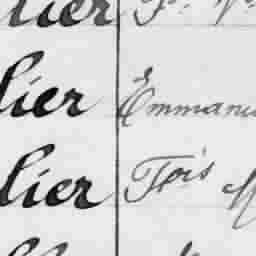 lier
lier Emmanu
lier Fois M